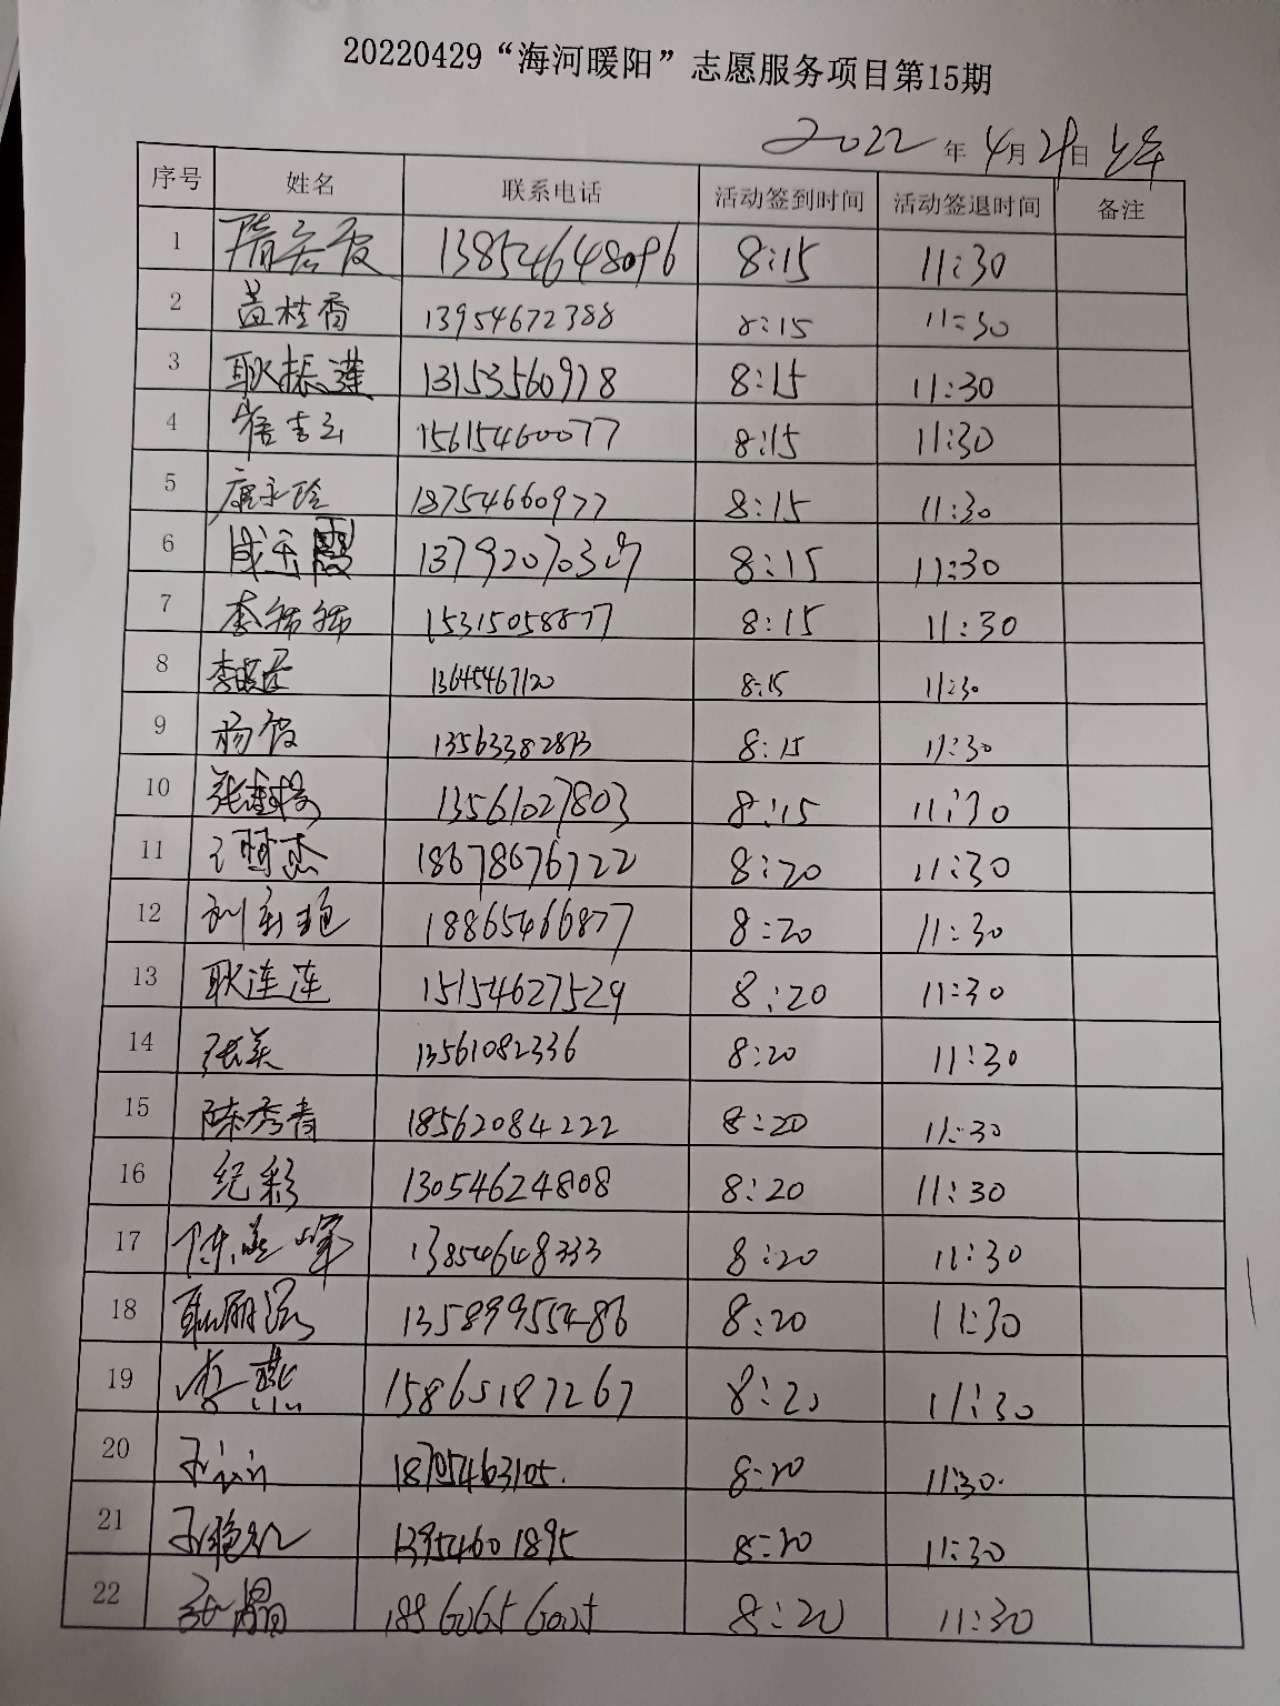 20220429“海河暖阳”志愿服务项目第15期
2022年4月29日 上午
序号 姓名 联系电话 活动签到时间 活动签退时间 备注
1 13854648096 8:15 11:30
2 盖桂香 13954672388 8:15 11:30
3 耿振莲 13153560978 8:15 11:30
4 15615460077 8:15 11:30
5 唐永玲 18754660977 8:15 11:30
6 成玉霞 8:15 11:30
7 李娣娣 15315058877 8:15 11:30
8 13645467120 8:15 11:30
9 杨霞 13563382873 8:15 11:30
10 13561027803 8:15 11:30
11 18678676722 8:20 11:30
12 刘彩艳 18865466877 8:20 11:30
13 耿连连 15154627529 8:20 11:30
14 张美 13561082336 8:20 11:30
15 陈秀青 18562084222 8:20 11:30
16 纪彩 13054624808 8:20 11:30
17 陈燕峰 13854648333 8:20 11:30
18 13589955486 8:20 11:30
19 李燕 15865187267 8:20 11:30
20 18705463105. 8:20 11:30.
21 13954601895 8:20 11:30
22 8:20 11:30